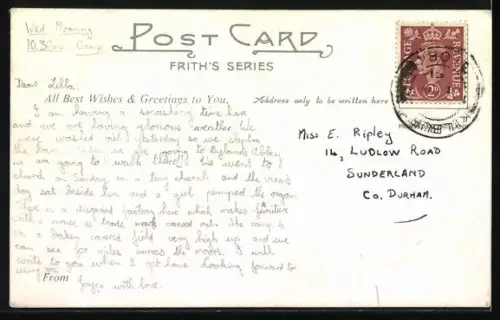 Wed. Morning
10.30am Camp
POST CARD
FRITH'S SERIES
Dear Lilla.
All Best Wishes & Greetings to You,
Address only to be written here
I am having a smashing time here
and we are having glorious weather. We
were washed out yesterday so we slept in
the barn. Later is are going to Bylands Abbey
we are going to walk there!! We went to
church on Sunday in a tiny church and the vicar's
dog sat beside him and a girl pumped the organ
There is a furniture factory here which makes
with a mouse as trade mark carved out. The camp is
in a bracken covered field very high up and we
can see for miles across the moors. I will
write to you when I get home. Looking forward to
seeing you
From
Joyce with love.
Miss E. Ripley
14, LUDLOW ROAD
SUNDERLAND
Co. DURHAM.
POSTAGE
REVENUE
2D